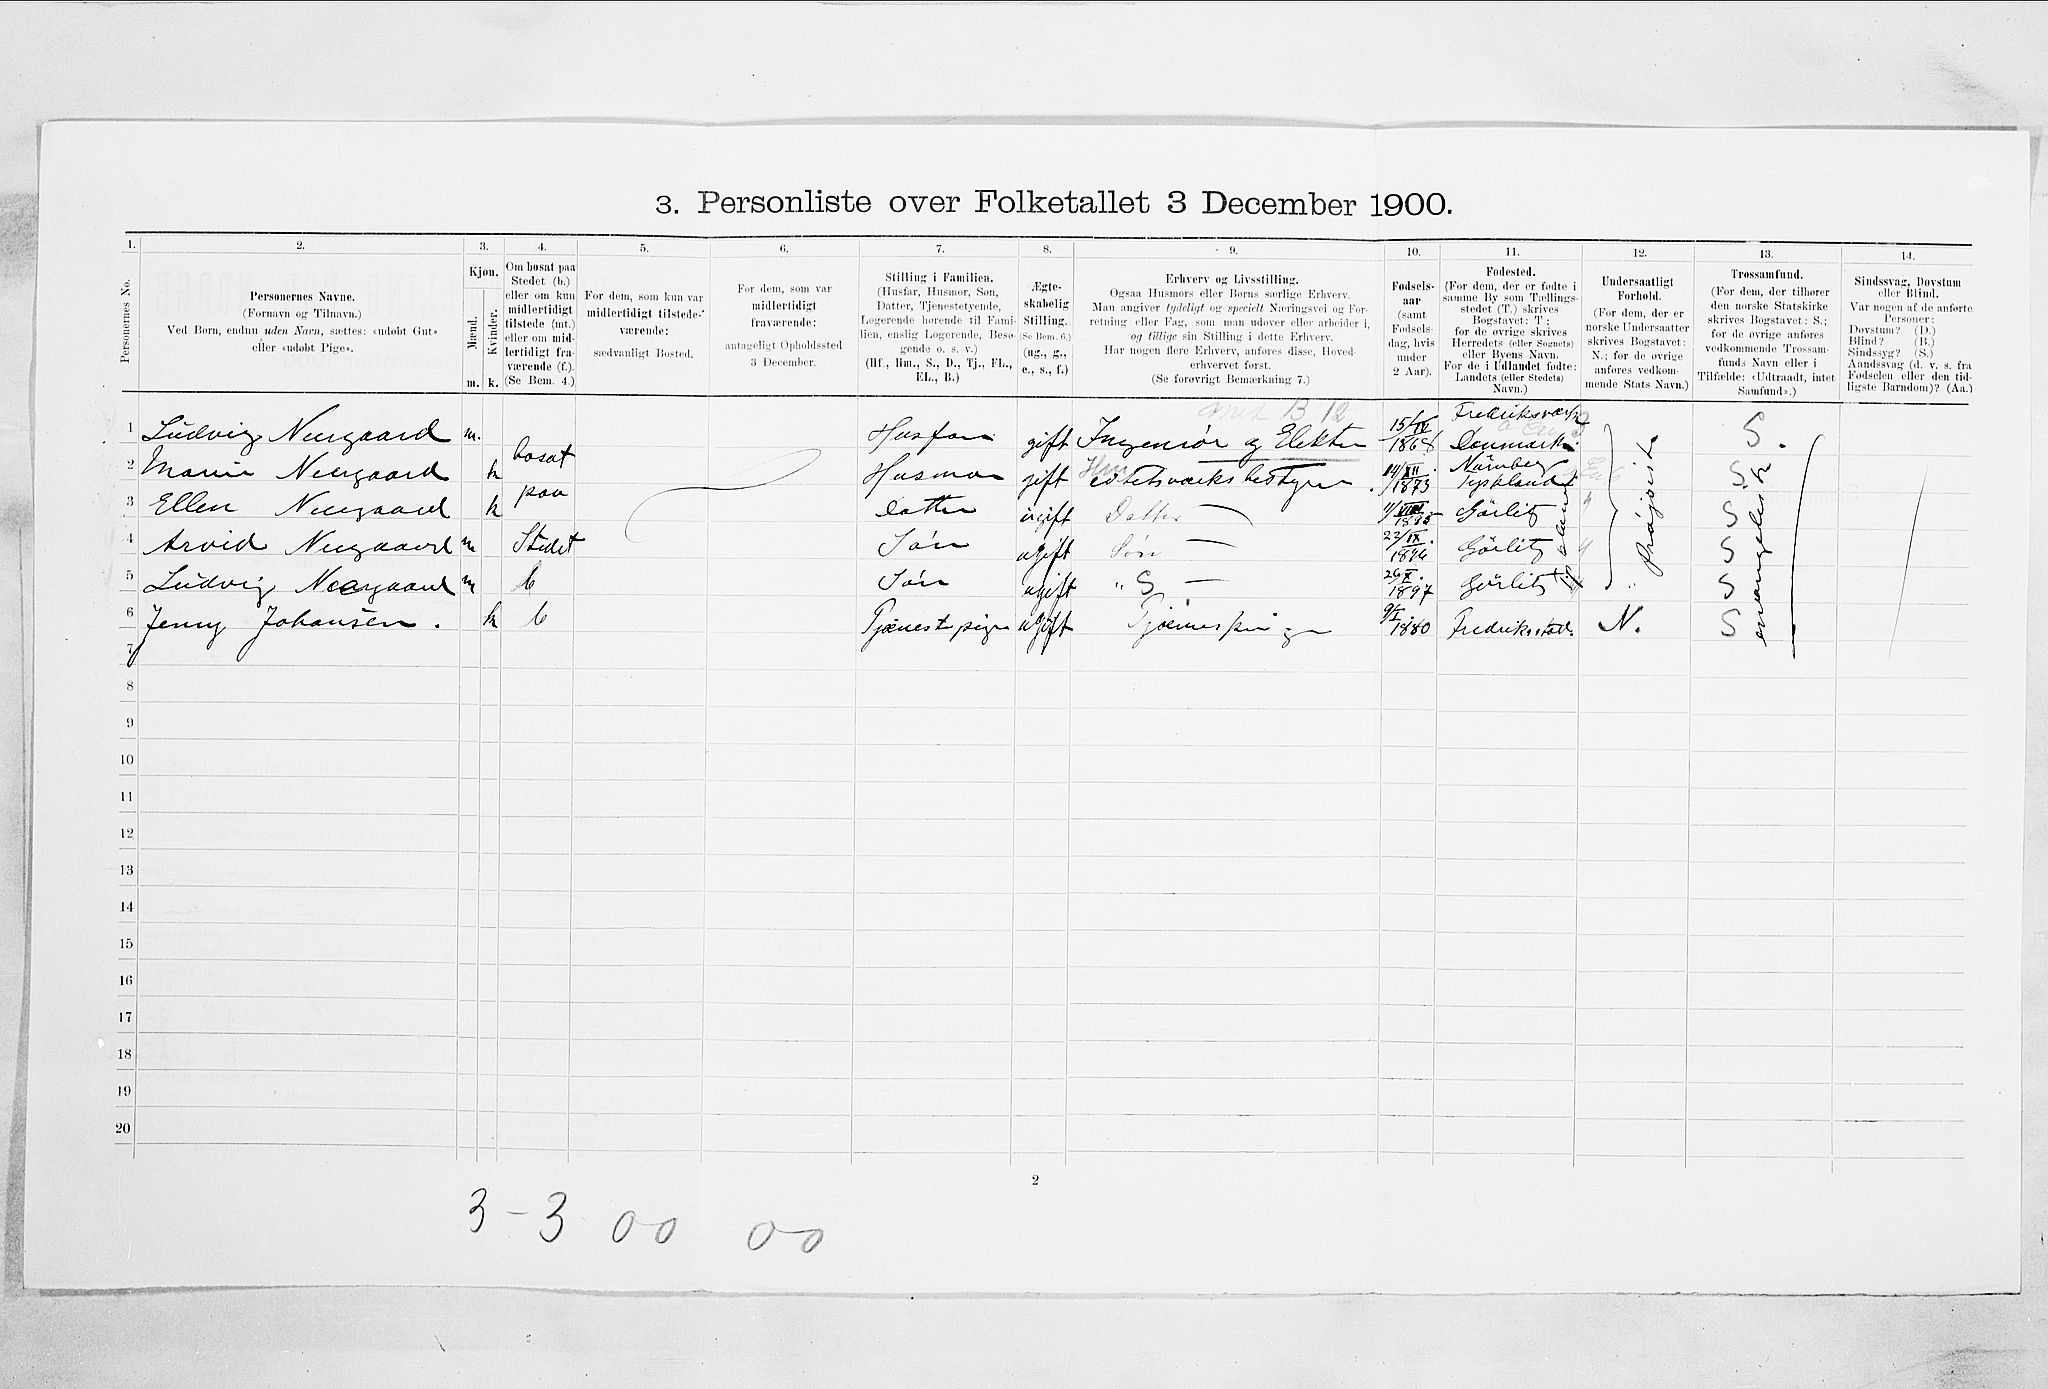 3. Personliste over Folketallet 3 December 1900.
1. 2. 3. 4. 5. 6. 7. 8. 9. 10. 11. 12. 13. 14.
Personernes No.
Personernes Navne.
(Fornavn og Tilnavn.)
Ved Børn, endnu uden Navn, sættes: «udøbt Gut»
eller «udøbt Pige».
Kjøn.
Mænd.
Kvinder.
m. k.
Om bosat paa
Stedet (b.)
eller om kun
midlertidigt
tilstede (mt.)
eller om mid-
lertidigt fra-
værende (f.).
(Se Bem. 4.)
For dem, som kun var
midlertidigt tilstede-
værende:
sædvanligt Bosted.
For dem, som var
midlertidigt
fraværende:
antageligt Opholdssted
3 December.
Stilling i Familien.
(Husfar, Husmor, Søn,
Datter, Tjenestetyende,
Logerende hørende til Fami-
lien, enslig Logerende, Besø-
gende o. s. v.)
(Hf., Hm., S., D., Tj., FL.,
EL., B.)
Ægte-
skabelig
Stilling.
(Se Bem. 6.)
(ug., g.,
e., s., f.)
Erhverv og Livsstilling.
Ogsaa Husmors eller Børns særlige Erhverv.
Man angiver tydeligt og specielt Næringsvei og For-
retning eller Fag, som man udøver eller arbeider i,
og tillige sin Stilling i dette Erhverv.
Har nogen flere Erhverv, anføres disse, Hoved-
erhvervet først.
(Se forøvrigt Bemærkning 7.)
Fødsels-
aar
(samt
Fødsels-
dag, hvis
under
2 Aar).
Fødested.
(For dem, der er fødte i
samme By som Tællings-
stedet (T.) skrives
Bogstavet: T.;
for de øvrige skrives
Herredets (eller Sognets)
eller Byens Navn.
For de i Udlandet fødte:
Landets (eller Stedets)
Navn.)
Undersaatligt
Forhold.
(For dem, der er
norske Undersaatter
skrives Bogstavet:
N.; for de øvrige
anføres vedkom-
mende Stats Navn.)
Trossamfund.
(For dem, der tilhører
den norske Statskirke
skrives Bogstavet: S.;
for de øvrige anføres
vedkommende Trossam-
funds Navn eller i
Tilfælde: «Udtraadt, intet
Samfund».)
Sindssvag, Døvstum
eller Blind.
Var nogen af de anførte
Personer:
Døvstum? (D.)
Blind? (B.)
Sindssyg? (S.)
Aandssvag (d. v. s. fra
Fødselen eller den tid-
ligste Barndom)? (Aa.)
B 12
1 Ludvig Neergaard m. bosat Husfar gift Ingeniør og Elektri 15/IV 1868 Fredriksværk Danmark. S.
2 Marie Neergaard k paa Husmor gift citetsværksbestyrer 14/XII 1873 Nürnberg Tyskland S
3 Ellen Neergaard k Datter ugift Datter — 1/VIII 1895 Görlitz S
4 Arvid Neergaard m Stedet Søn ugift Søn — 22/IX 1896 Görlitz S
5 Ludvig Neergaard m b Søn ugift " S — 26/X 1897 Görlitz S
6 Jenny Johansen. k b Tjenestpige ugift Tjenespige 9/I 1880 Fredriksstad. N. S
evangelisk
7
8
9
10
11
12
13
14
15
16
17
18
19
20
2
3 - 3 00 00